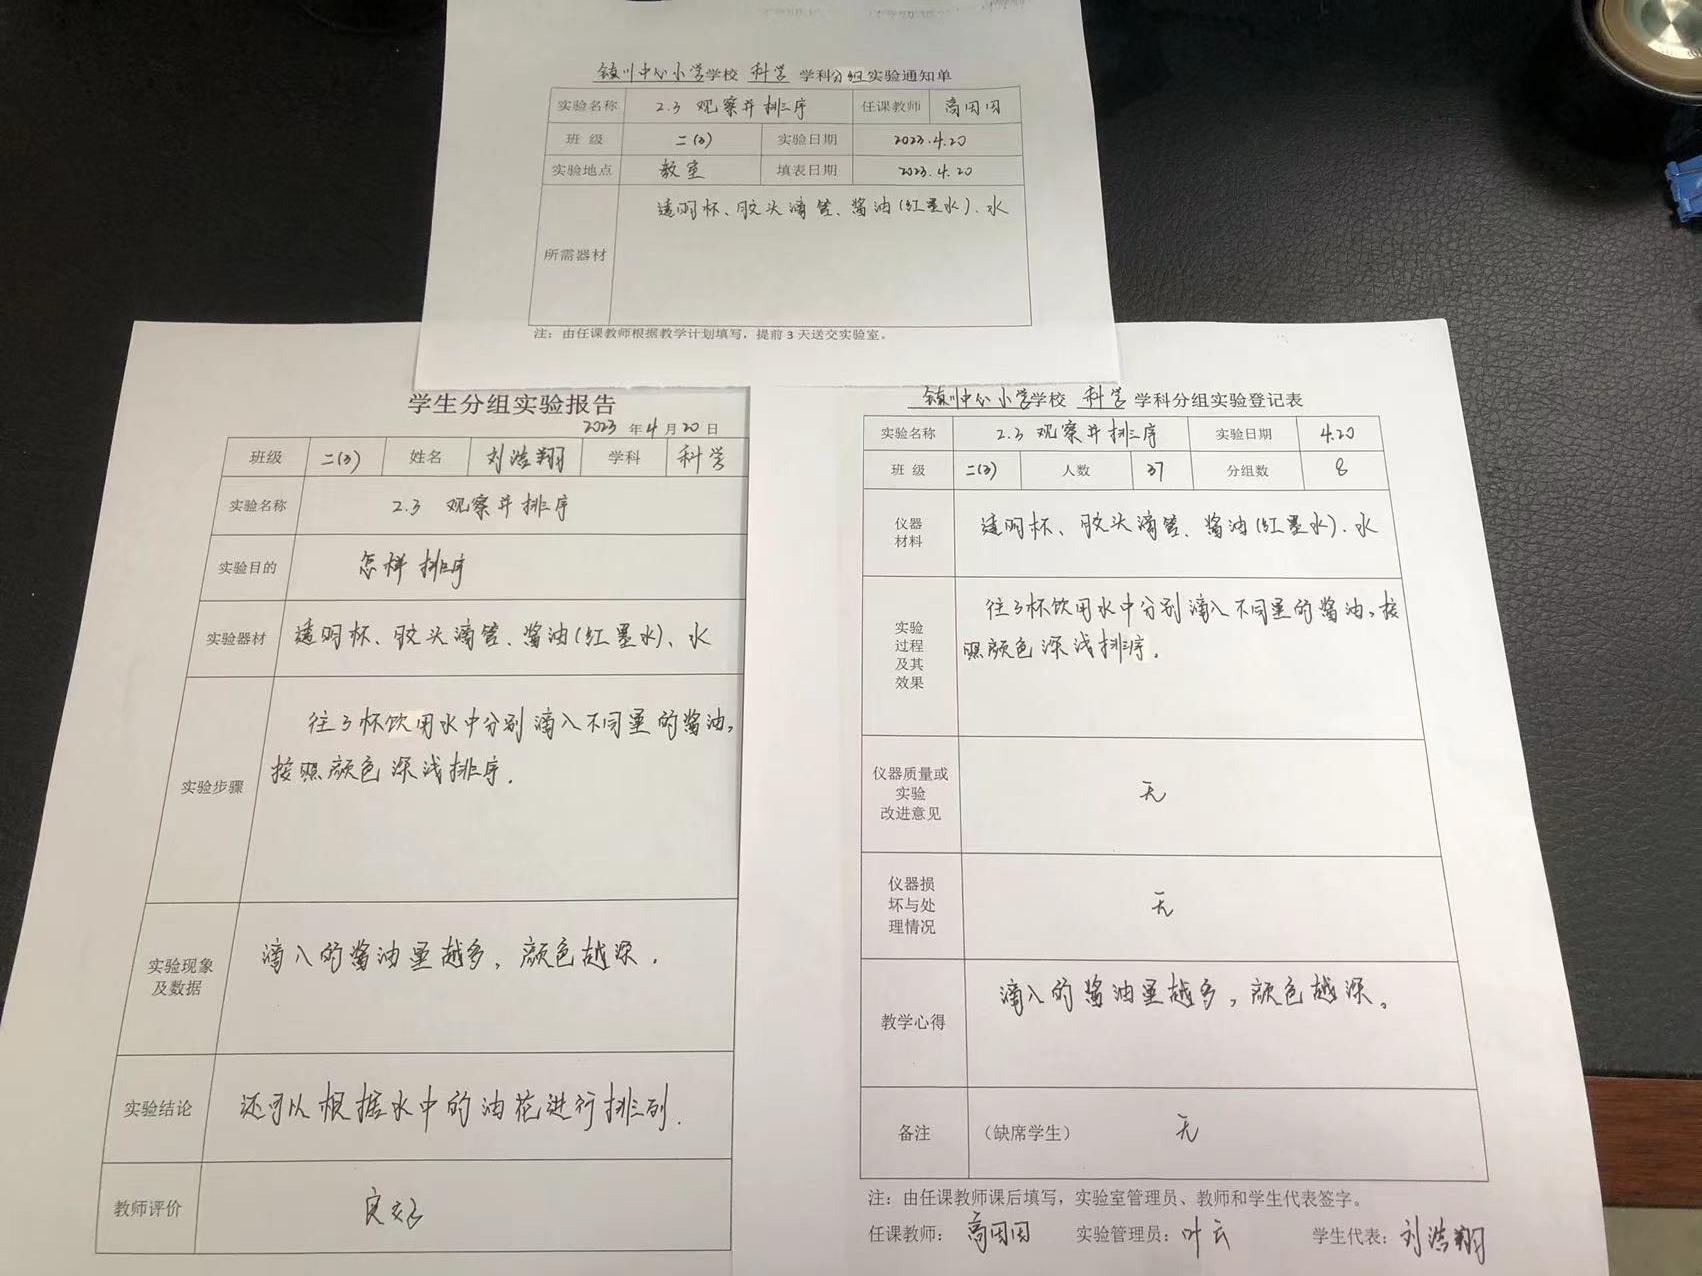 镇川中心小学学校 科学 学科分组实验通知单
实验名称 2.3 观察并排序 任课教师 高因因
班 级 二(3) 实验日期 2023.4.20
实验地点 教室 填表日期 2023.4.20
所需器材 透明杯、胶头滴管、酱油(红墨水)、水
注：由任课教师根据教学计划填写，提前 3 天送交实验室。
学生分组实验报告
2023 年 4 月 20 日
班级 二(3) 姓名 刘浩翔 学科 科学
实验名称 2.3 观察并排序
实验目的 怎样排序
实验器材 透明杯、胶头滴管、酱油(红墨水)、水
实验步骤 往3杯饮用水中分别滴入不同量的酱油，
按照颜色深浅排序.
实验现象
及数据
滴入的酱油量越多，颜色越深.
实验结论 还可以根据水中的油花进行排列.
教师评价 良好
镇川中心小学学校 科学 学科分组实验登记表
实验名称 2.3 观察并排序 实验日期 4.20
班 级 二(3) 人数 37 分组数 8
仪器
材料
透明杯、胶头滴管、酱油(红墨水)、水
实验
过程
及其
效果
往3杯饮用水中分别滴入不同量的酱油，按
照颜色深浅排序.
仪器质量或
实验
改进意见
无
仪器损
坏与处
理情况
无
教学心得 滴入的酱油量越多，颜色越深。
备注 （缺席学生） 无
注：由任课教师课后填写，实验室管理员、教师和学生代表签字。
任课教师：高因因 实验管理员：叶云 学生代表：刘浩翔